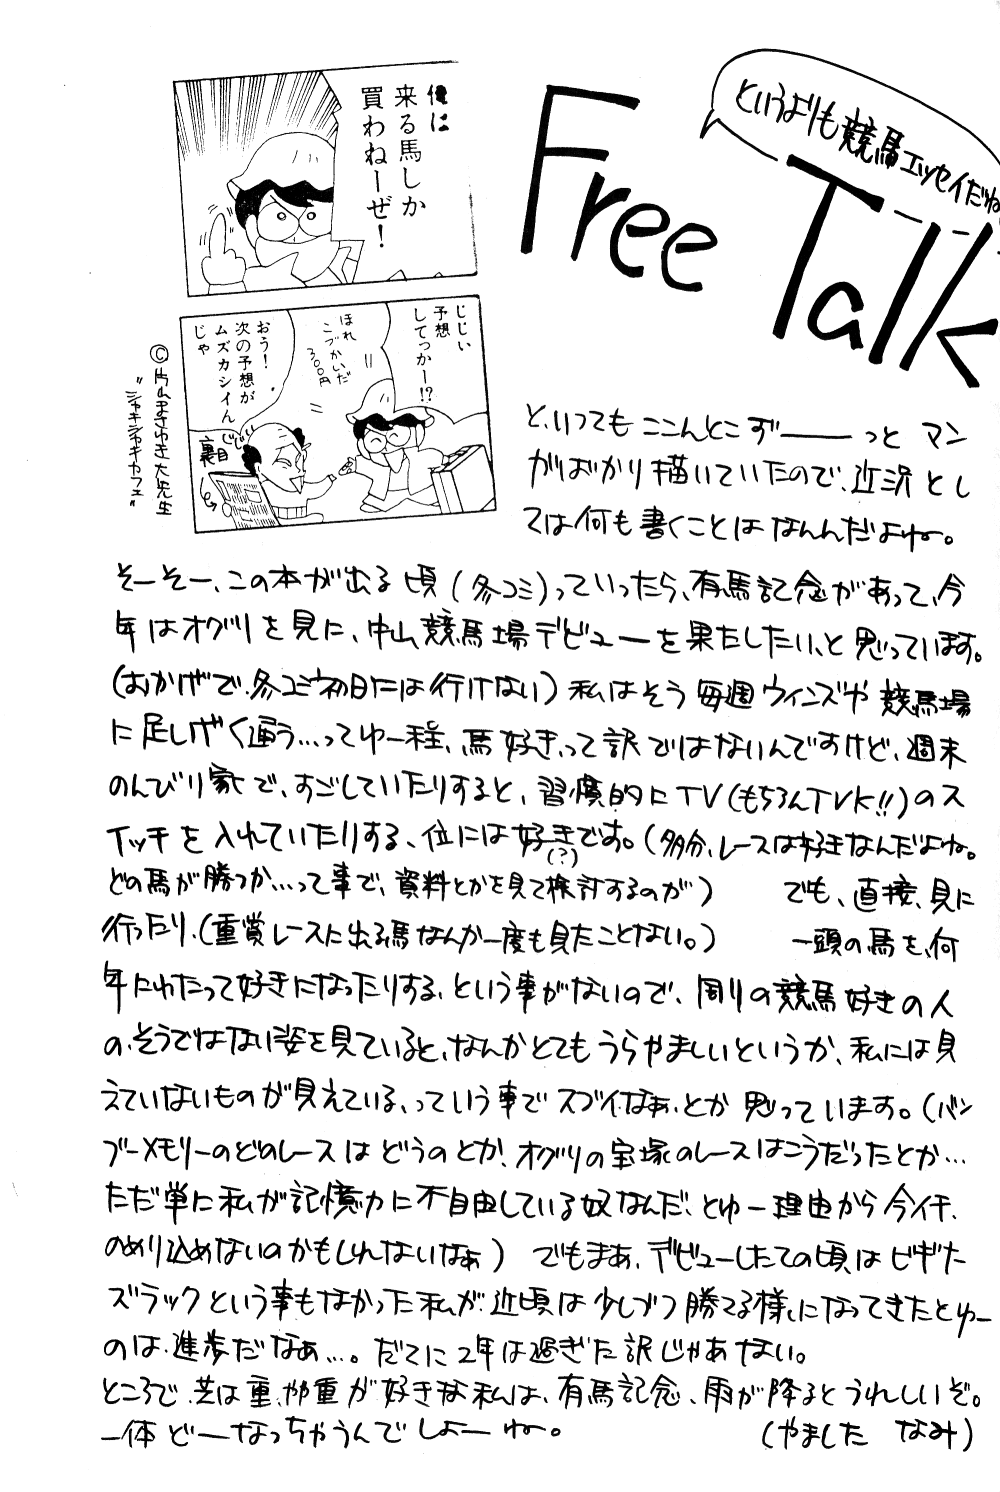 Free Talk
というよりも競馬エッセイだね
俺に
来る馬しか
買わねーぜ!
じじい
予想
してっかー!?
ほれ
こづかいだ
300円
おう!
次の予想が
ムズカシイん
じゃ
裏目
©片山まさゆき大先生
"シャキシャキカフェ"
と、いってもここんとこずーーーっと マン
がばかり描いていたので、近況とし
ては何も書くことはなんだよね。
そーそー、この本が出る頃(冬コミ)っていったら、有馬記念があって、今
年はオグリを見に、中山競馬場デビューを果たしたい、と思っています。
(おかげで、冬コミ初日には行けない)私はそう毎週ウィンズや競馬場
に足しげく通う…ってゆー程、馬好き、って訳ではないんですけど、週末
のんびり家で、すごしていたりすると、習慣的にTV(もちろんTVK!!)のス
イッチを入れていたりする、位には好きです。(多分、レースは好きなんだよね。
(?)
どの馬が勝つか…って事で、資料とかを見て検討するのが) でも、直接、見に
行ったり、(重賞レースに出る馬なんか一度も見たことない。) 一頭の馬を、何
年にわたって好きになったりする、という事がないので、周りの競馬好きの人
の、そうではない姿を見ていると、なんかとてもうらやましいというか、私には見
えていないものが見えている、っていう事でスゴイなぁ、とか思っています。(バン
ブーメモリーのどのレースはどうのとか、オグリの宝塚のレースはこうだったとか…
ただ単に私が記憶力に不自由している奴なんだ、とゆー理由から今イチ、
のめり込めないのかもしれないなぁ) でもまぁ、デビューしたての頃はビギナー
ズラックという事もなかった私が、近頃は少しづつ勝てる様になってきたとゆー
のは、進歩だなぁ…。だてに2年は過ぎた訳じゃあない。
ところで、芝は重、やや重が好きな私は、有馬記念、雨が降るとうれしいぞ。
一体どーなっちゃうんでしょーね。 (やました なみ)